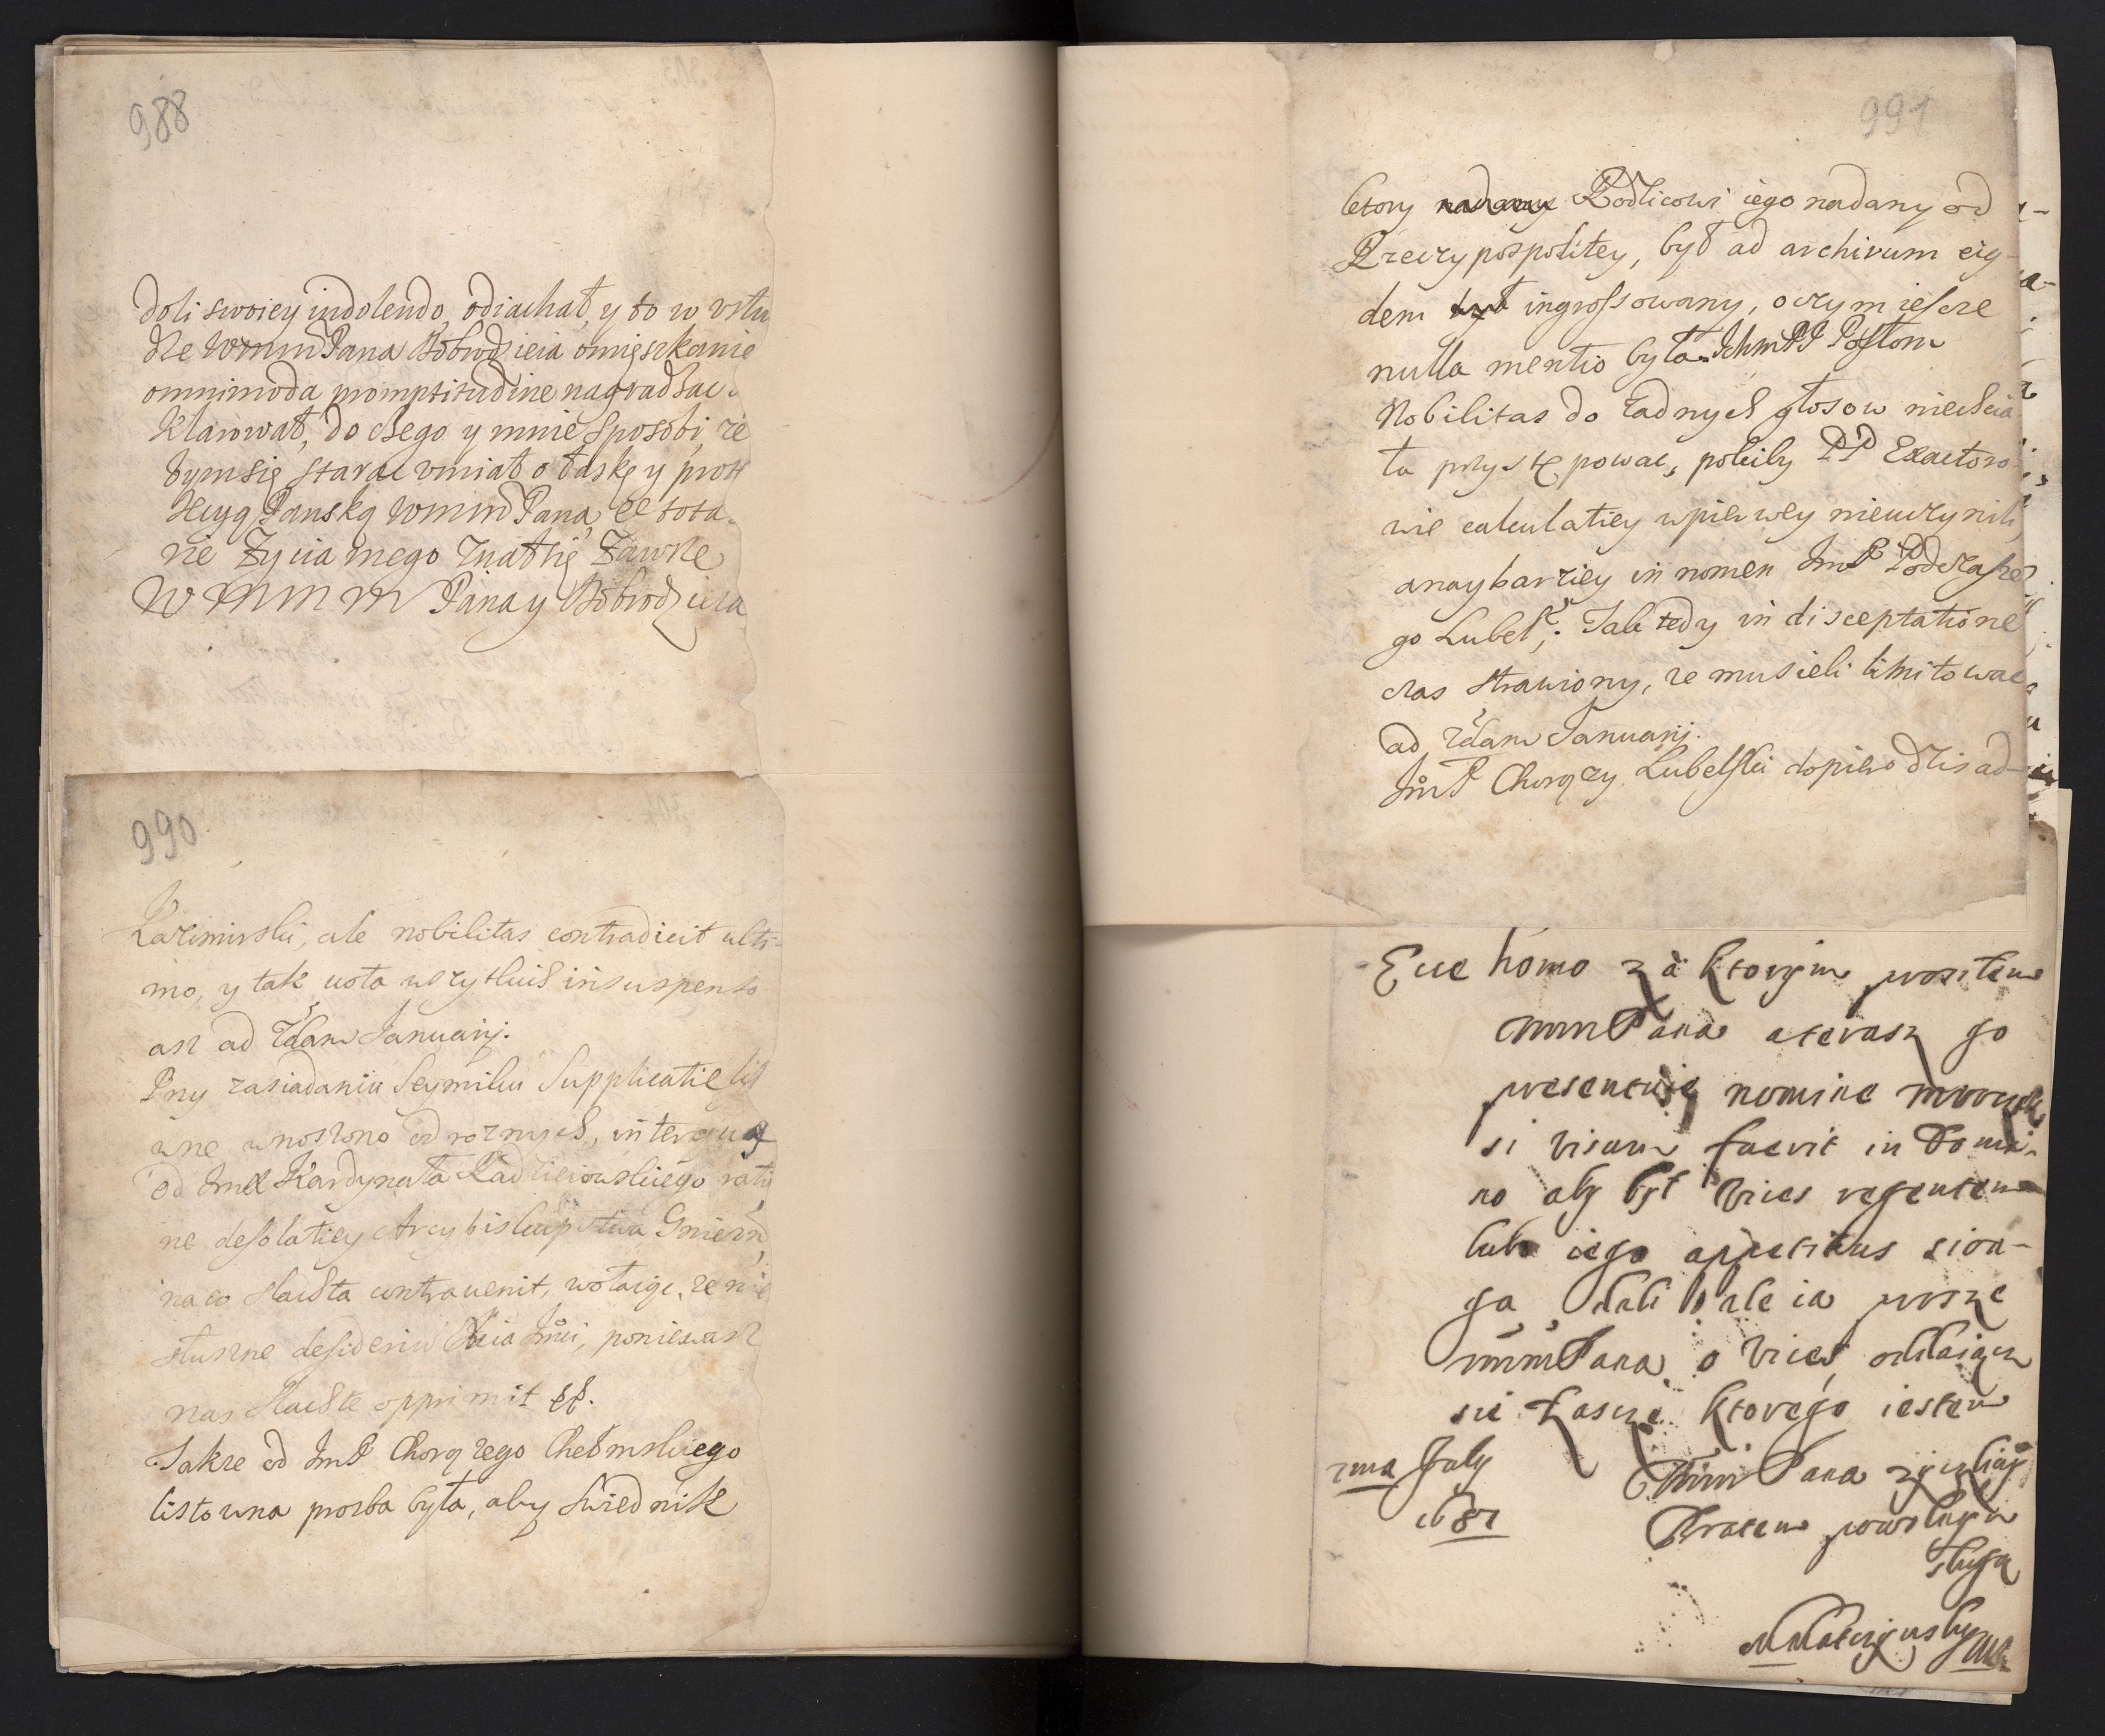 988
doli swoiey indolendo, odiachał, y to w usłu
dze WMM Pana Dobrodzieia omięszkanie
omnimoda promptitudine nagradzac
klarował, do czego y mnie sposobi, ze
bym się starac umiał o łaskę y prote
kcyą Panską WMM Pana, ze tota
nie Zycia mego Znac się Zawsze
WMMM Pana y Dobrodzieia
990
Kazimirski, ale nobilitas contradicit ulti-
mo, y tak uota wszytkich in suspenso
asz ad 7dam Januarij.
Przy zasiadaniu Seymiku Supplicatie list
wne wnoszono od roznych, inter quas
od JmX Kardynała Radzieiowskiego ratio
ne desolatiey Arcybiskupstwa Gniezn
na co slachta contrauenit, wołaiąc, ze nie
słuszne desideriu Xcia Jmci, poniewasz
nas slachte opprimit etc.
Takze od JmP Chorązego Chełmskiego
listowna prozba była, aby Swiednik
991
ktory Rodzicowi iego nadany od
Rzeczypospolitey, był ad archivum eig-
dem ingrossowany, o czym iescze
nulla mentio była. IchmPP Posłom
Nobilitas do zadnych głosow niechcia
ła przystępowac, pokiby PP Exactoro
wie calculatiey wpierwey nieuczynili,
a naybarziey in nomen JmP Podczasze
go Lubel: Tak tedy in disceptatione
czas strawiony, ze musieli limitowac
ad 7dam Januarij.
JmP Chorązy Lubelski dopiero dzis ad-
Ecce homo za ktorym prosiłem
WMMPana a teraz go
presentuię nomine
si visum fuerit in Domi-
no aby był Vices regentem
lubo iego apetitus sion-
ga dali ale ia prosze
WMMPana o Vices oddaiącz
sie Łascze ktorego iestem
7ma July
1687
WMM Pana zyczliwy
Bratem powolnym
sługą